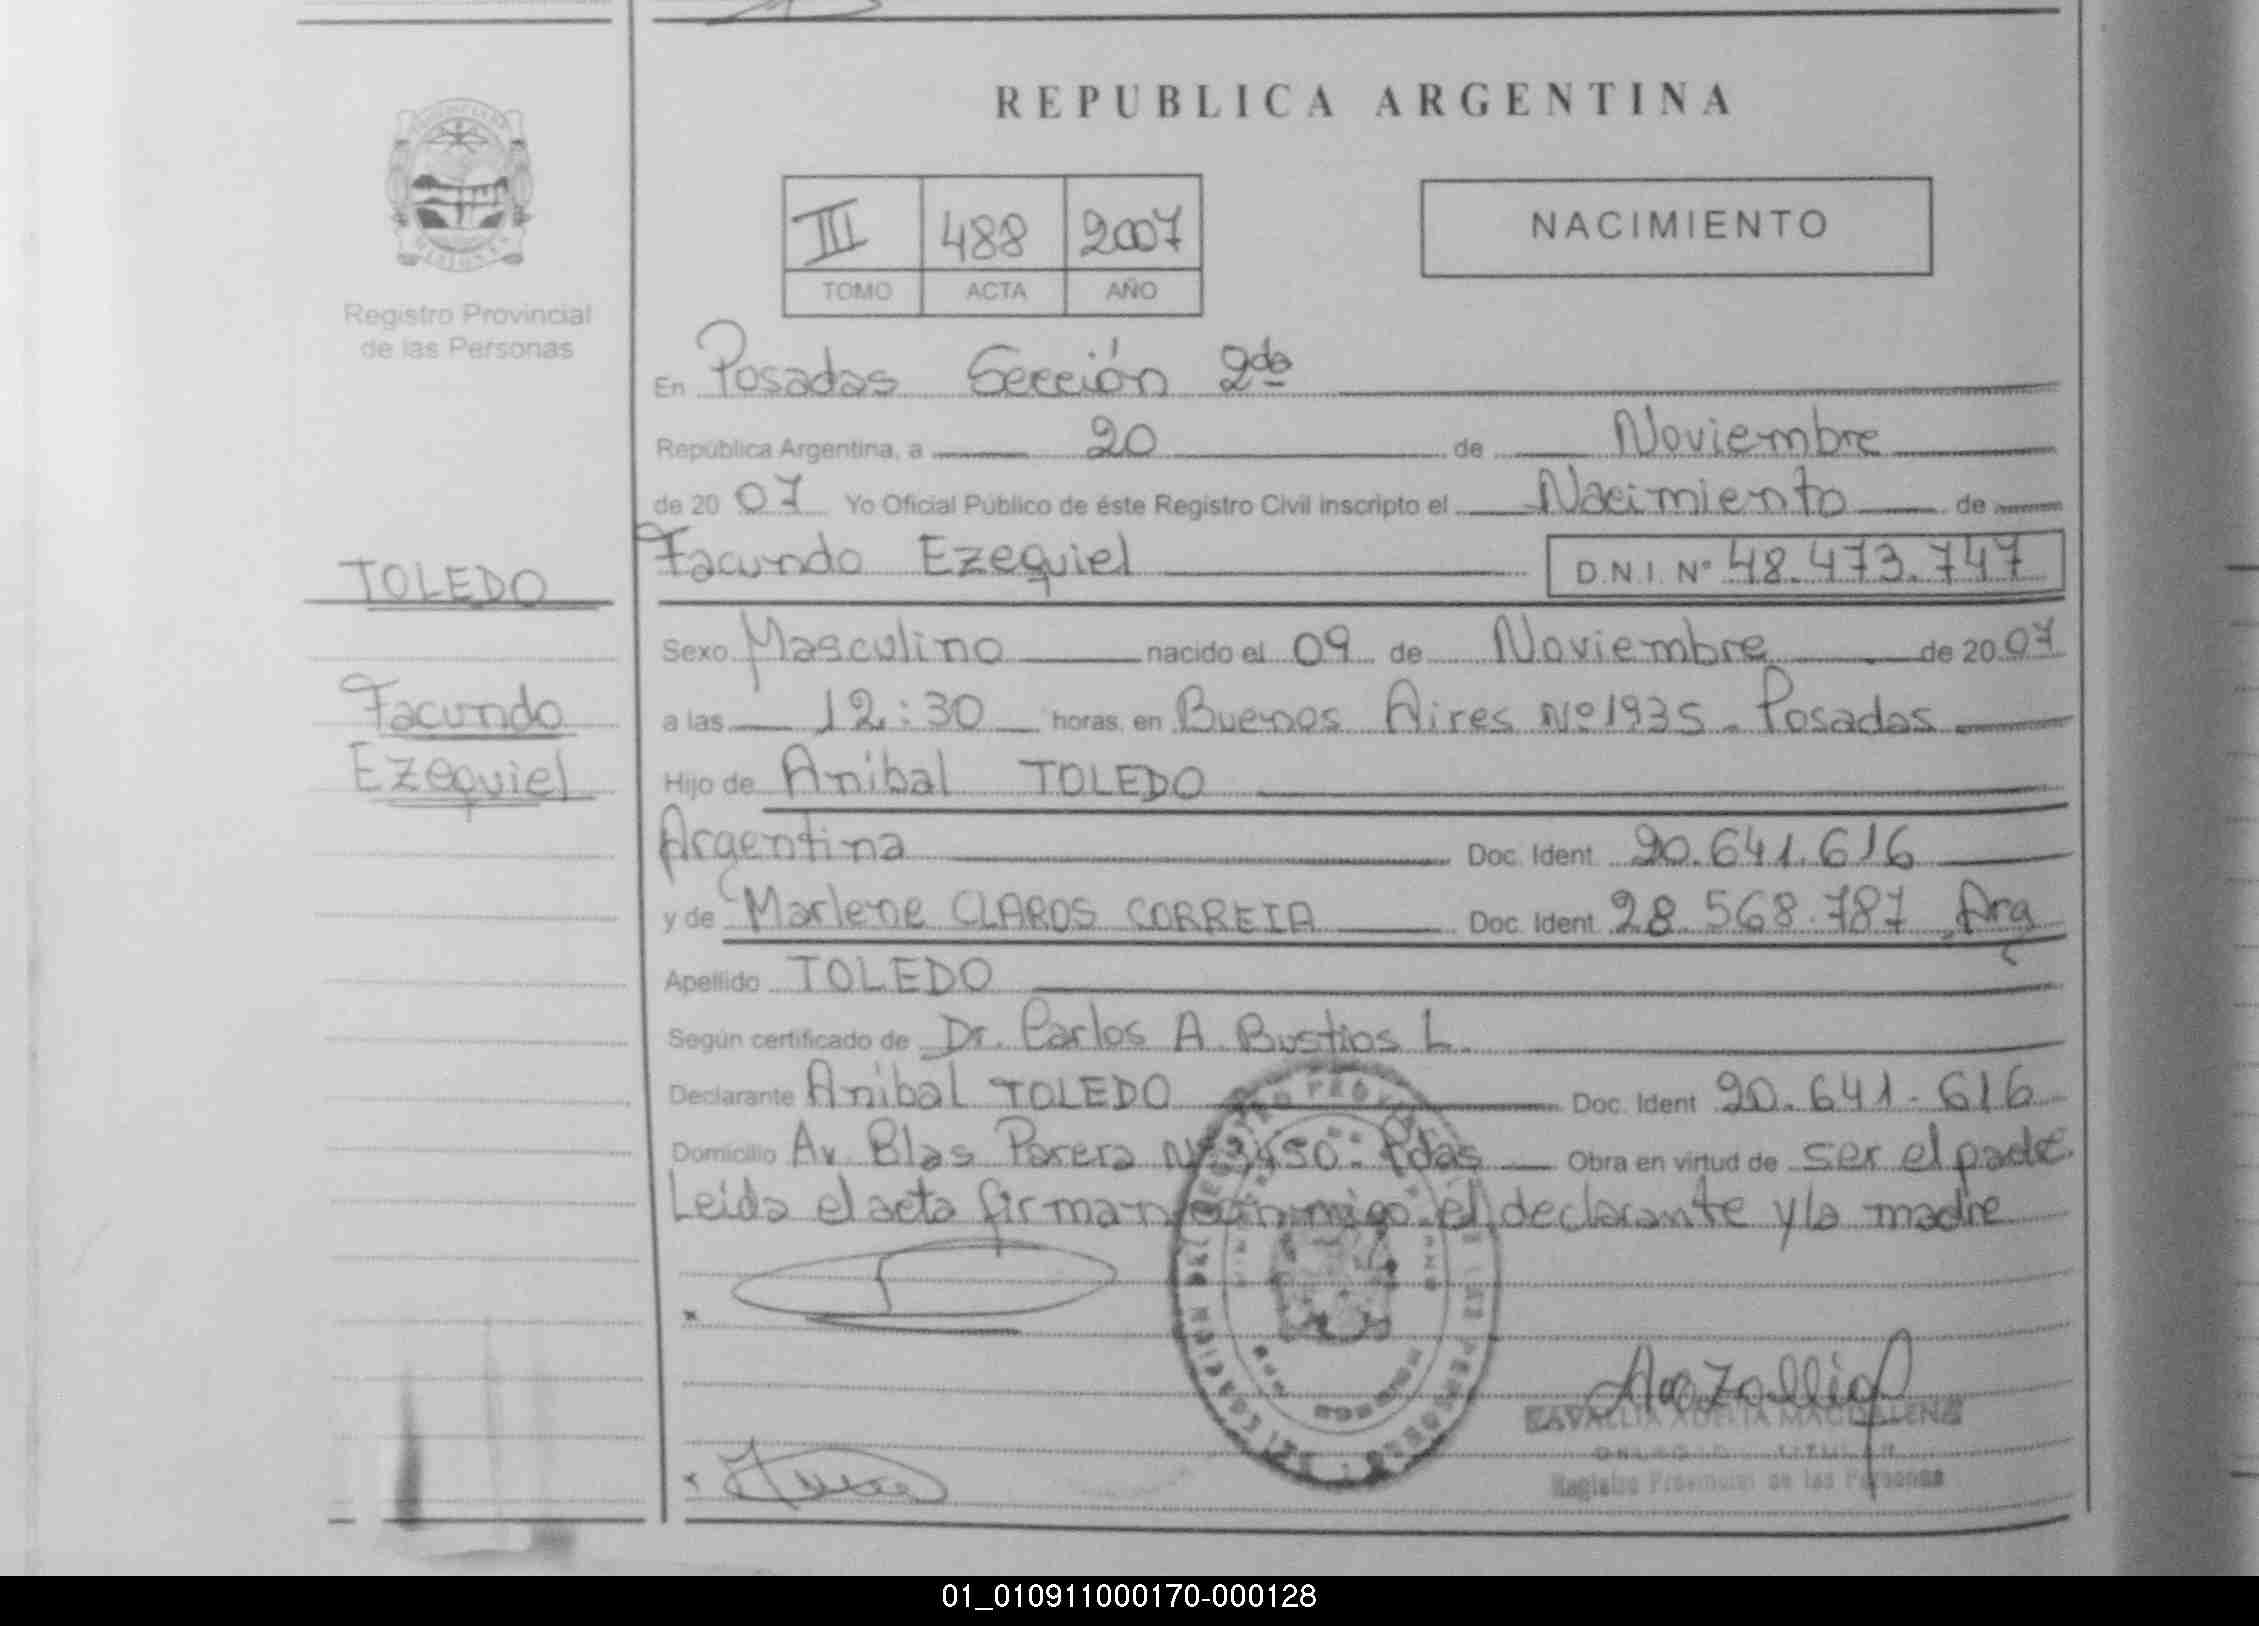 REPUBLICA ARGENTINA
III 488 2007
TOMO ACTA AÑO
NACIMIENTO
Registro Provincial
de las Personas
TOLEDO
Facundo
Ezequiel
En Posadas Sección 2da
República Argentina, a 20 de Noviembre
de 20 07 Yo Oficial Público de éste Registro Civil inscripto el Nacimiento de
Facundo Ezequiel D.N.I. Nº 48.473.747
Sexo Masculino nacido el 09 de Noviembre de 20 07
a las 12:30 horas, en Buenos Aires Nº 1935 - Posadas
Hijo de Anibal TOLEDO
Argentina Doc. Ident. 20.641.616
y de Marlene CLAROS CORREIA Doc. Ident. 28.568.787 Arg
Apellido TOLEDO
Según certificado de Dr. Carlos A. Bustios L.
Declarante Anibal TOLEDO Doc. Ident. 20.641.616
Domicilio Av. Blas Parera Nº 3450 - Pdas Obra en virtud de ser el padre.
Leida el acta firman conmigo el declarante y la madre
ADELIA MAGDALENA
TITULAR
Registro Provincial de las Personas
01_010911000170-000128